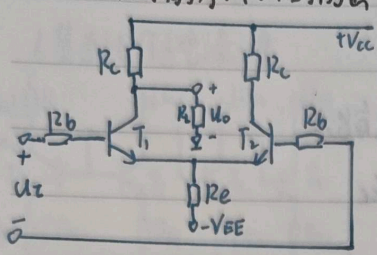 +Vcc
Rc
Rc
+
RL
Uo
-
Rb
T1
T2
Rb
+
UI
-
Re
-VEE